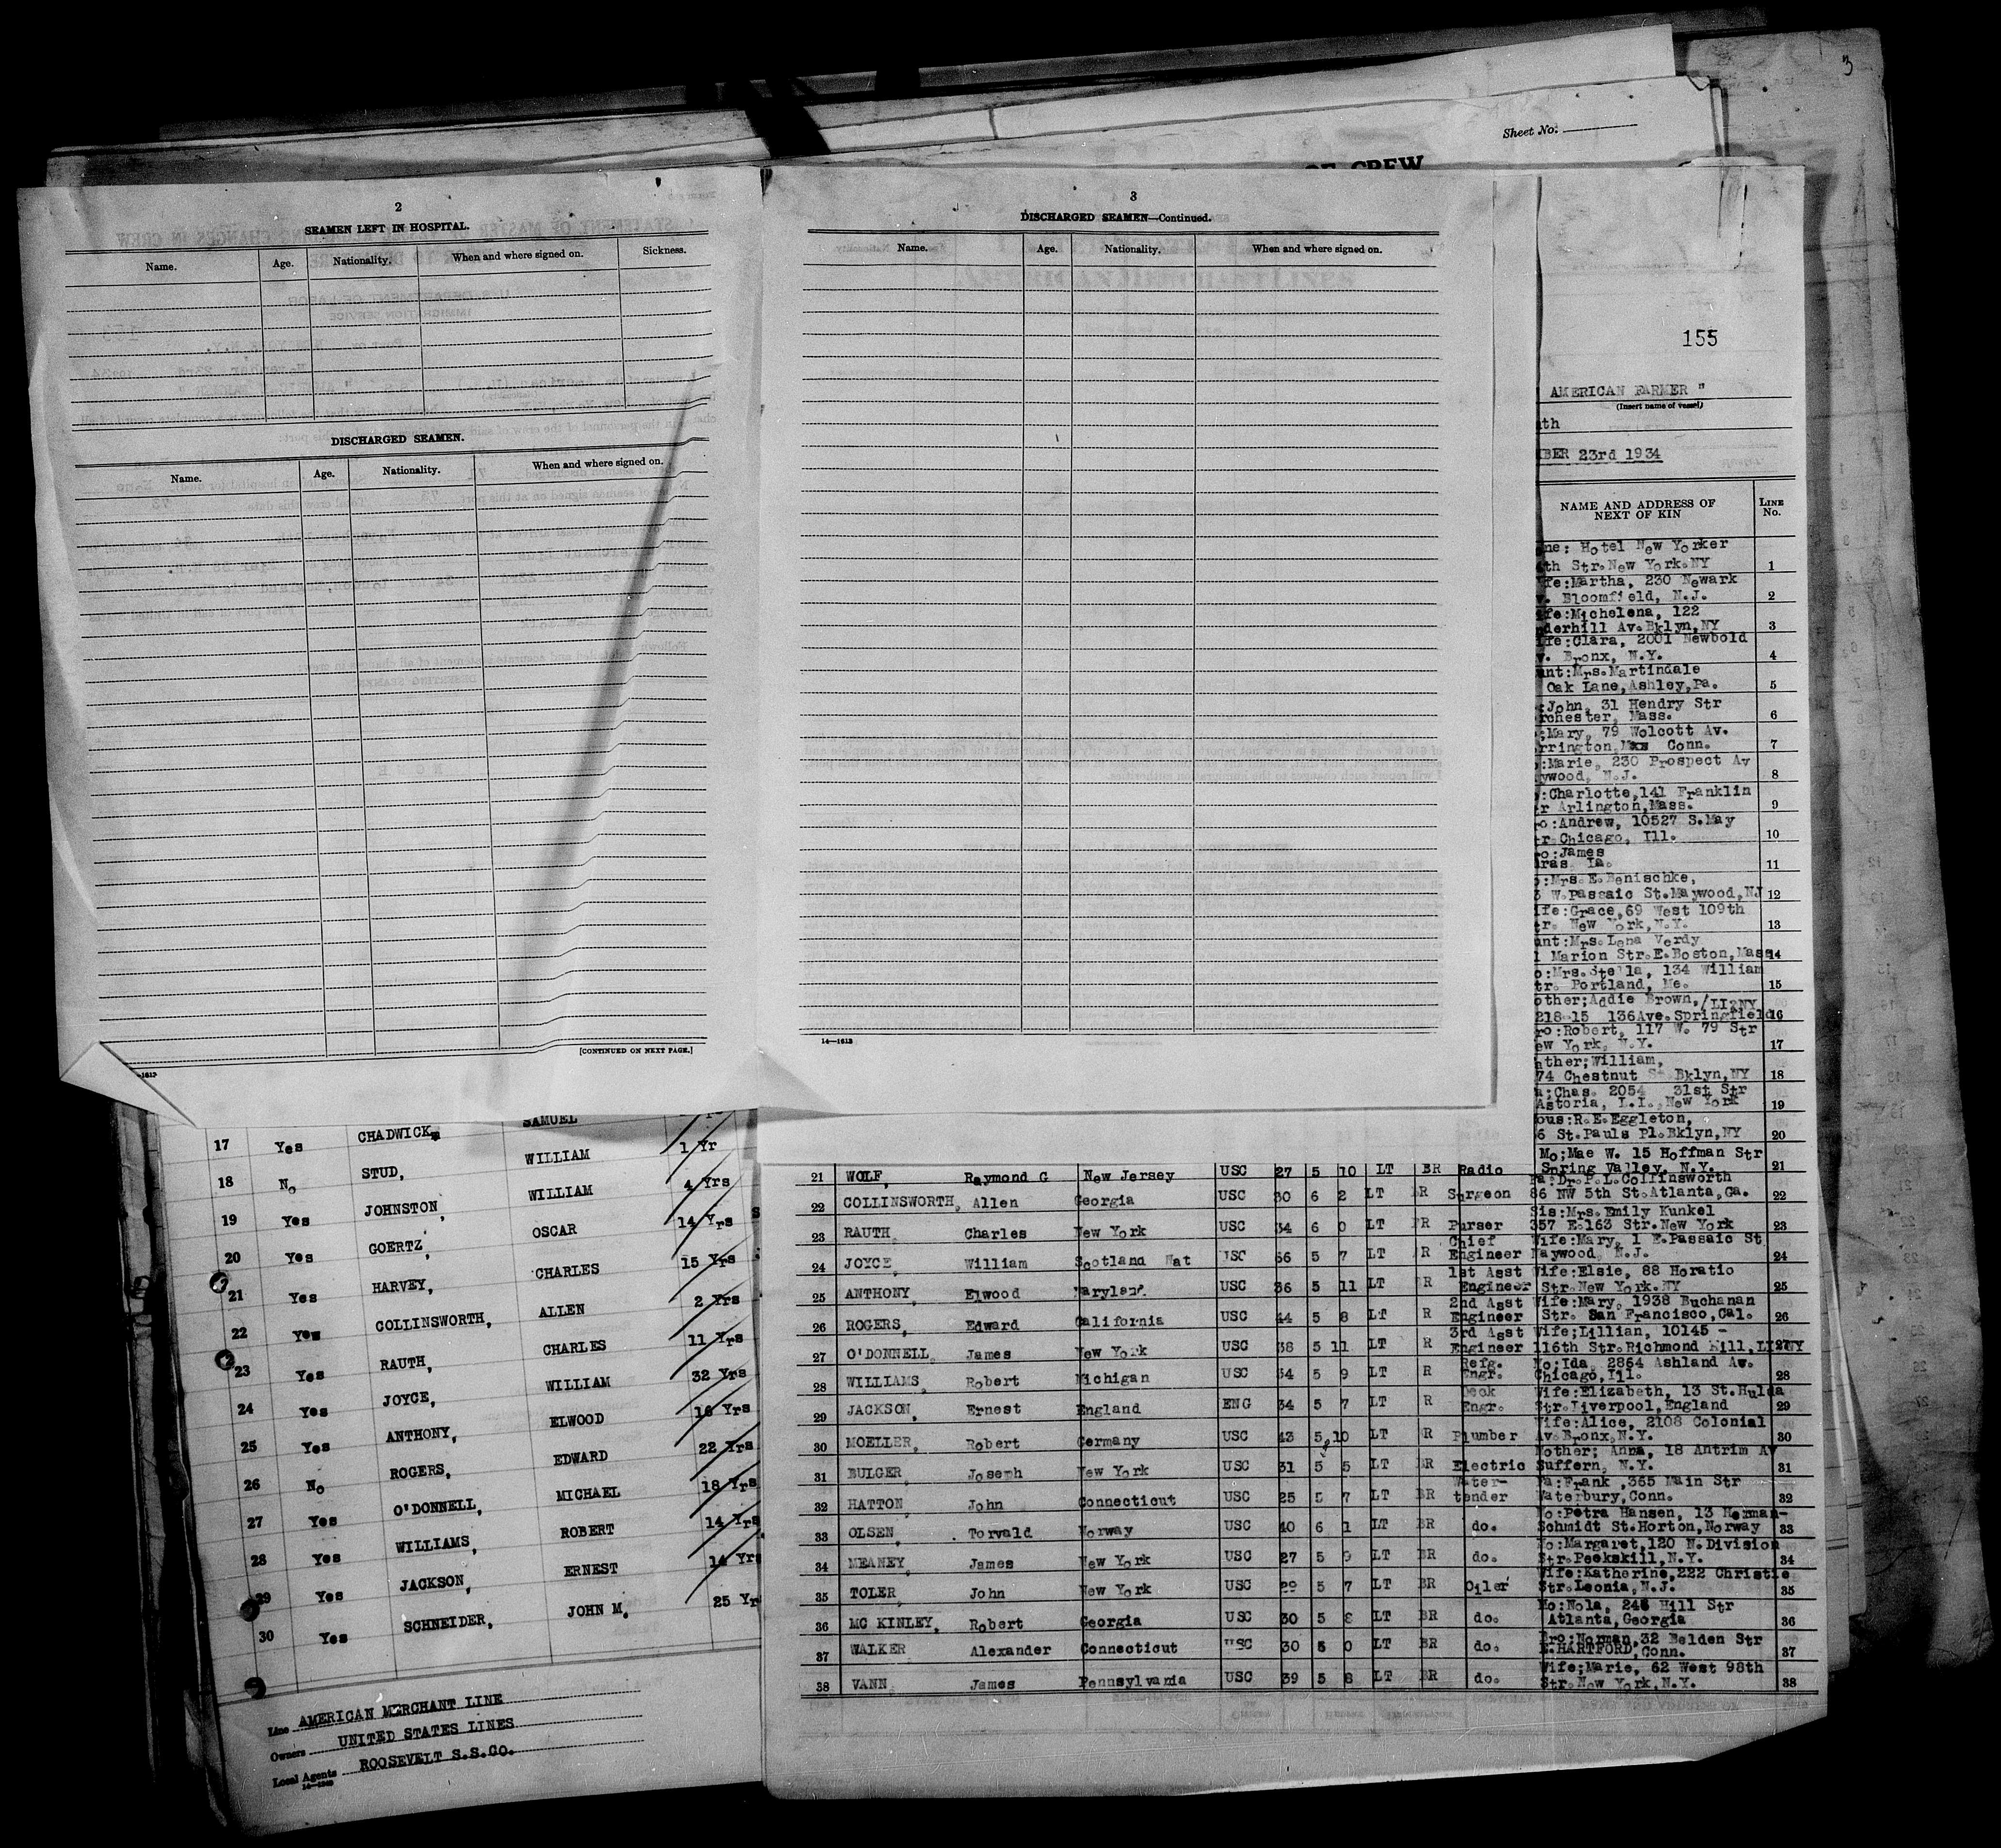 3
Sheet No.
OF CREW
2
SEAMEN LEFT IN HOSPITAL.
Name. Age. Nationality. When and where signed on. Sickness.
DISCHARGED SEAMEN.
Name. Age. Nationality. When and where signed on.
[CONTINUED ON NEXT PAGE.]
3
DISCHARGED SEAMEN—Continued.
Name. Age. Nationality. When and where signed on.
14—1613
155
AMERICAN FARMER "
(Insert name of vessel)
23rd 1934
NAME AND ADDRESS OF NEXT OF KIN LINE No.
Hotel New Yorker
Str. New York. NY 1
Martha, 230 Newark
Bloomfield, N.J. 2
Michelena, 122
Av. Bklyn, NY 3
Clara, 2001 Newbold
Bronx, N.Y. 4
Mrs. Martindale
Oak Lane, Ashley, Pa. 5
John, 31 Hendry Str
Mass. 6
Mary, 79 Wolcott Av.
Conn. 7
Marie, 230 Prospect Av
N.J. 8
Charlotte, 141 Franklin
Arlington, Mass. 9
Andrew, 10527 S. May
Chicago, Ill. 10
James
Ia. 11
Mrs. E. Benischke,
W. Passaic St. Maywood, NJ 12
Grace, 69 West 109th
New York, N.Y. 13
Mrs. Lena Verdy
Marion Str. E. Boston, Mass 14
Mrs. Stella, 134 William
Portland, Me. 15
Addie Brown, /LI2NY
218-15 136Ave. Springfield 16
Robert, 117 W. 79 Str
York, N.Y. 17
William,
74 Chestnut St Bklyn, NY 18
Chas. 2054 31st Str
Astoria, L.I., New York 19
R.E. Eggleton,
6 St. Pauls Pl. Bklyn, NY 20
SAMUEL
17 Yes CHADWICK, WILLIAM 1 Yr
18 No STUD, WILLIAM 4 Yrs
19 Yes JOHNSTON, OSCAR 14 Yrs
20 Yes GOERTZ, CHARLES 15 Yrs
21 Yes HARVEY, ALLEN 2 Yrs
22 Yes COLLINSWORTH, CHARLES 11 Yrs
23 Yes RAUTH, WILLIAM 32 Yrs
24 Yes JOYCE, ELWOOD 16 Yrs
25 Yes ANTHONY, EDWARD 22 Yrs
26 No ROGERS, MICHAEL 18 Yrs
27 Yes O'DONNELL, ROBERT 14 Yrs
28 Yes WILLIAMS, ERNEST 14 Yrs
29 Yes JACKSON, JOHN M. 25 Yr
30 Yes SCHNEIDER,
Line AMERICAN MERCHANT LINE
Owners UNITED STATES LINES
Local Agents ROOSEVELT S.S.CO.
Mo; Mae W. 15 Hoffman Str
21 WOLF, Raymond G New Jersey USC 27 5 10 LT BR Radio Spring Valley, N.Y. 21
Pa: Dr. P.L. Collinsworth
22 COLLINSWORTH, Allen Georgia USC 30 6 2 LT BR Surgeon 86 NW 5th St. Atlanta, Ga. 22
Sis: Mrs. Emily Kunkel
23 RAUTH, Charles New York USC 34 6 0 LT BR Purser 357 E. 163 Str. New York 23
Chief Wife: Mary, 1 E. Passaic St
24 JOYCE, William Scotland Nat USC 56 5 7 LT R Engineer Maywood, N.J. 24
1st Asst Wife: Elsie, 88 Horatio
25 ANTHONY, Elwood Maryland USC 36 5 11 LT R Engineer Str. New York. NY 25
2nd Asst Wife: Mary, 1938 Buchanan
26 ROGERS, Edward California USC 44 5 8 LT R Engineer Str. San Francisco, Cal. 26
3rd Asst Wife; Lillian, 10145 -
27 O'DONNELL, James New York USC 38 5 11 LT R Engineer 116th Str. Richmond Hill, LI NY 27
Refg. Mo; Ida, 2864 Ashland Av.
28 WILLIAMS, Robert Michigan USC 34 5 9 LT R Engr. Chicago, Ill. 28
Deck Wife: Elizabeth, 13 St. Hulda
29 JACKSON, Ernest England ENG 34 5 7 LT R Engr. Str. Liverpool, England 29
Wife: Alice, 2108 Colonial
30 MOELLER, Robert Germany USC 43 5 10 LT R Plumber Av. Bronx, N.Y. 30
Mother; Anna, 18 Antrim Av
31 BULGER, Joseph New York USC 31 5 5 LT BR Electric Suffern, N.Y. 31
Water- Pa: Frank, 365 Main Str
32 HATTON, John Connecticut USC 25 5 7 LT BR tender Waterbury, Conn. 32
Mo: Petra Hansen, 13 Herman-
33 OLSEN, Torvald Norway USC 40 6 1 LT BR do. Schmidt St. Horton, Norway 33
Mo: Margaret, 120 N. Division
34 MEANEY, James New York USC 27 5 9 LT BR do. Str. Peekskill, N.Y. 34
Wife: Katherine, 222 Christie
35 TOLER, John New York USC 29 5 7 LT BR Oiler Str. Leonia, N.J. 35
Mo: Nola, 246 Hill Str
36 MC KINLEY, Robert Georgia USC 30 5 8 LT BR do. Atlanta, Georgia 36
Bro: Norman, 32 Belden Str
37 WALKER Alexander Connecticut USC 30 6 0 LT BR do. E. HARTFORD, Conn. 37
Wife; Marie, 62 West 98th
38 VANN, James Pennsylvania USC 39 5 8 LT BR do. Str. New York, N.Y. 38